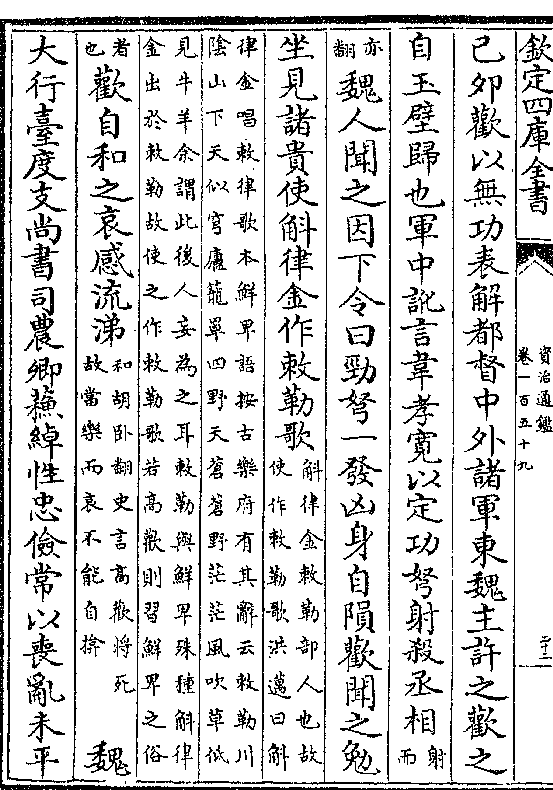 欽定四庫全書
資治通鑑
卷一百五十九
二十一
己卯歡以無功表解都督中外諸軍東魏主許之歡之
自玉壁歸也軍中訛言韋孝寬以定功弩射殺丞相射而
亦翻魏人聞之因下令曰勁弩一發凶身自隕歡聞之勉
坐見諸貴使斛律金作敕勒歌斛律金敕勒部人也故使作敕勒歌洪邁曰斛
律金唱敕律歌本鮮卑語按古樂府有其辭云敕勒川陰山下天似穹廬籠罩四野天蒼蒼野茫茫風吹草低
見牛羊余謂此後人妄為之耳敕勒與鮮卑殊種斛律金出於敕勒故使之作敕勒歌若高歡則習鮮卑之俗
者也歡自和之哀感流涕和胡卧翻史言高歡將死故當樂而哀不能自揜魏
大行臺度支尚書司農卿蘇綽性忠儉常以喪亂未平